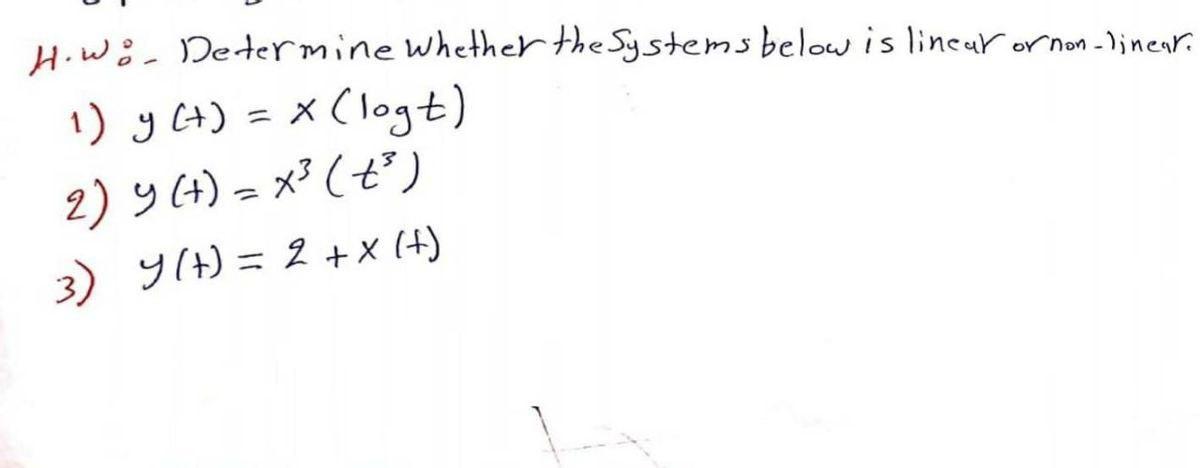 H.w:- Determine whether the Systems below is linear or non-linear.
1) y(t) = x(logt)
2) y(t) = x³(t³)
3) y(t) = 2 + x(t)